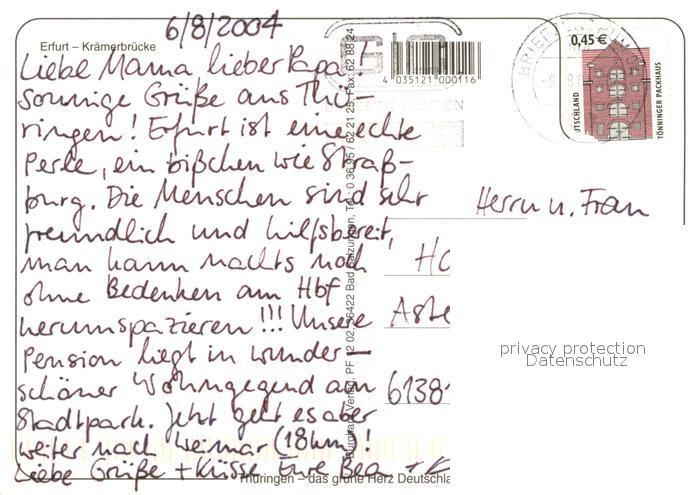 6/8/2004
Erfurt – Krämerbrücke
Liebe Mama lieber Papa!
Sonnige Grüße aus Thü-
ringen! Erfurt ist eine echte
Perle, ein bißchen wie Straß-
burg. Die Menschen sind sehr
freundlich und hilfsbereit,
man kann nachts noch
ohne Bedenken am Hbf
herumspazieren!!! Unsere
Pension liegt in wunder-
schöner Wohngegend am
Stadtpark. Jetzt geht es aber
weiter nach Weimar (18km)!
Liebe Grüße + Küsse Eure Bea +
Thüringen – das grüne Herz Deutschla
Verlag, PF 12 02, 36422 Bad Salzungen, Tel.: 0 36 95 / 62 21 25, Fax: 62 88 24
4 035121 000116
BRIEF
0,45 €
TSCHLAND
TÖNNINGER PACKHAUS
Herrn u. Frau
Ho
Aste
6138
privacy protection
Datenschutz